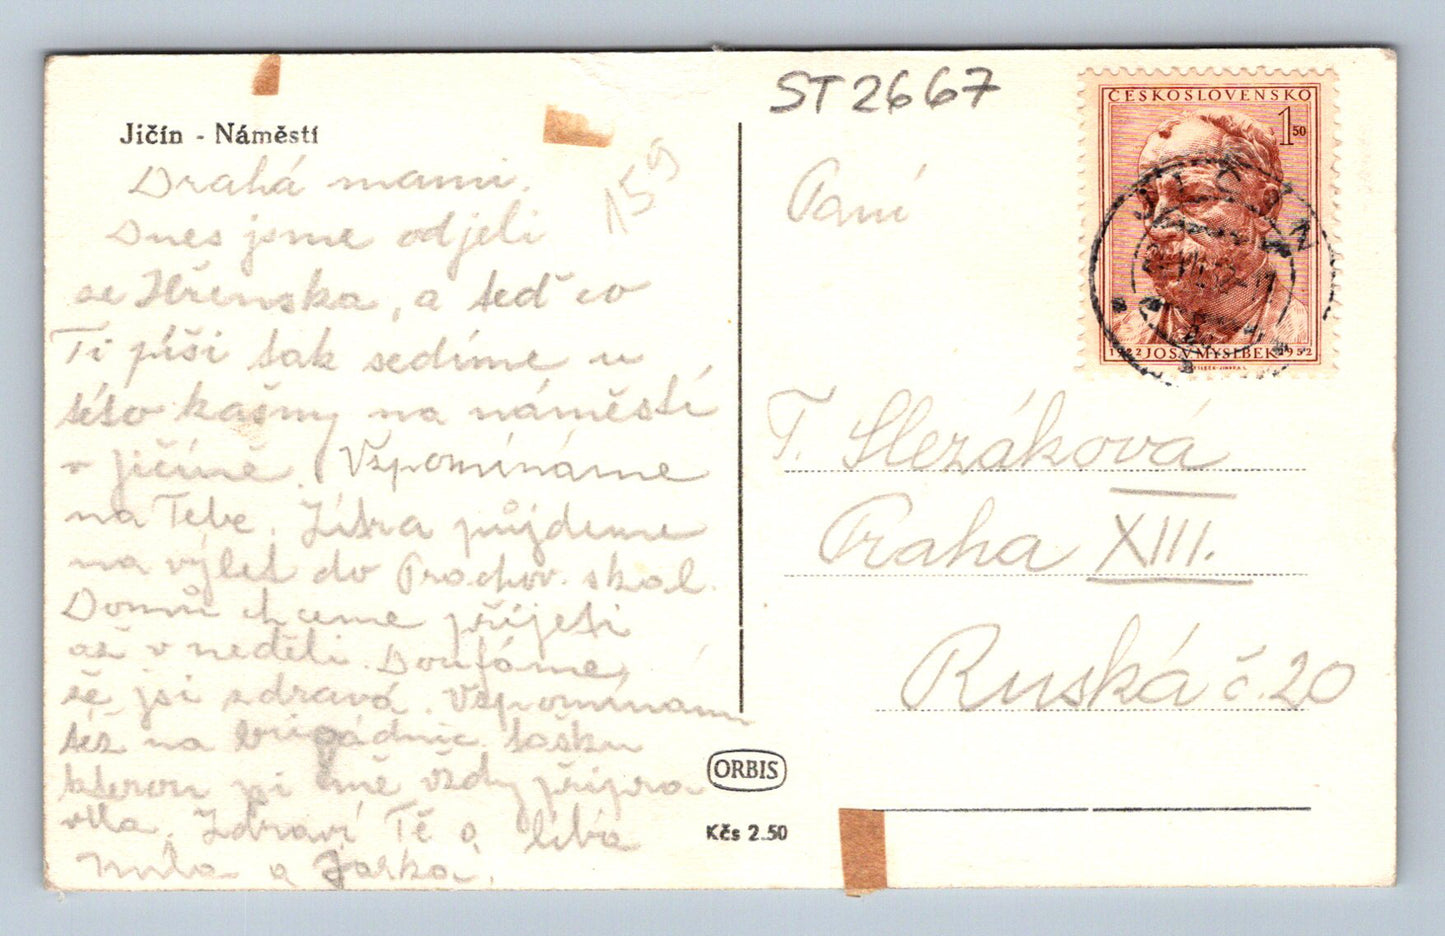 ST2667
Jičín - Náměstí
159
Drahá mami,
Dnes jsme odjeli
ze Hřenska, a teď co
Ti píši tak sedíme u
této kašny na náměstí
v Jičíně. Vzpomínáme
na Tebe. Zítra půjdeme
na výlet do Prachov. skal.
Domů chceme přijeti
až v neděli. Doufáme,
že jsi zdravá. Vzpomínám
též na brigádnic. tašku
kterou jsi mě vždy připra
vila. Zdraví Tě a líbá
Míla a Jarka.
Paní
T. Slezáková
Praha XIII.
Ruská č. 20
ČESKOSLOVENSKO
1 50
1922 JOS.V.MYSLBEK 1952
JIČÍN
ORBIS
Kčs 2.50